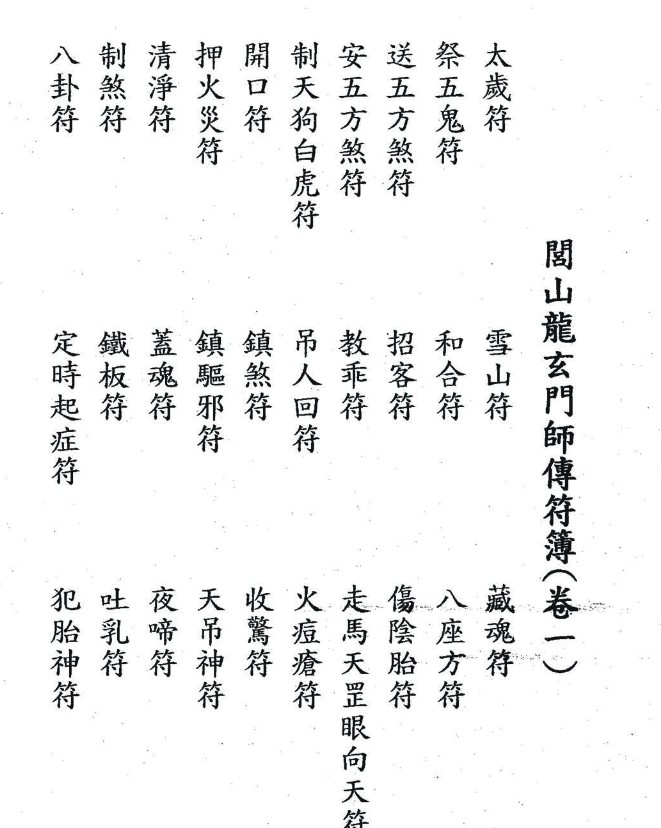 閭山龍玄門師傳符簿(卷一)
太歲符
雪山符
藏魂符
祭五鬼符
和合符
八座方符
送五方煞符
招客符
傷陰胎符
安五方煞符
教乖符
走馬天罡眼向天符
制天狗白虎符
吊人回符
火痘瘡符
開口符
鎮煞符
收驚符
押火災符
鎮驅邪符
天吊神符
清淨符
蓋魂符
夜啼符
制煞符
鐵板符
吐乳符
八卦符
定時起症符
犯胎神符